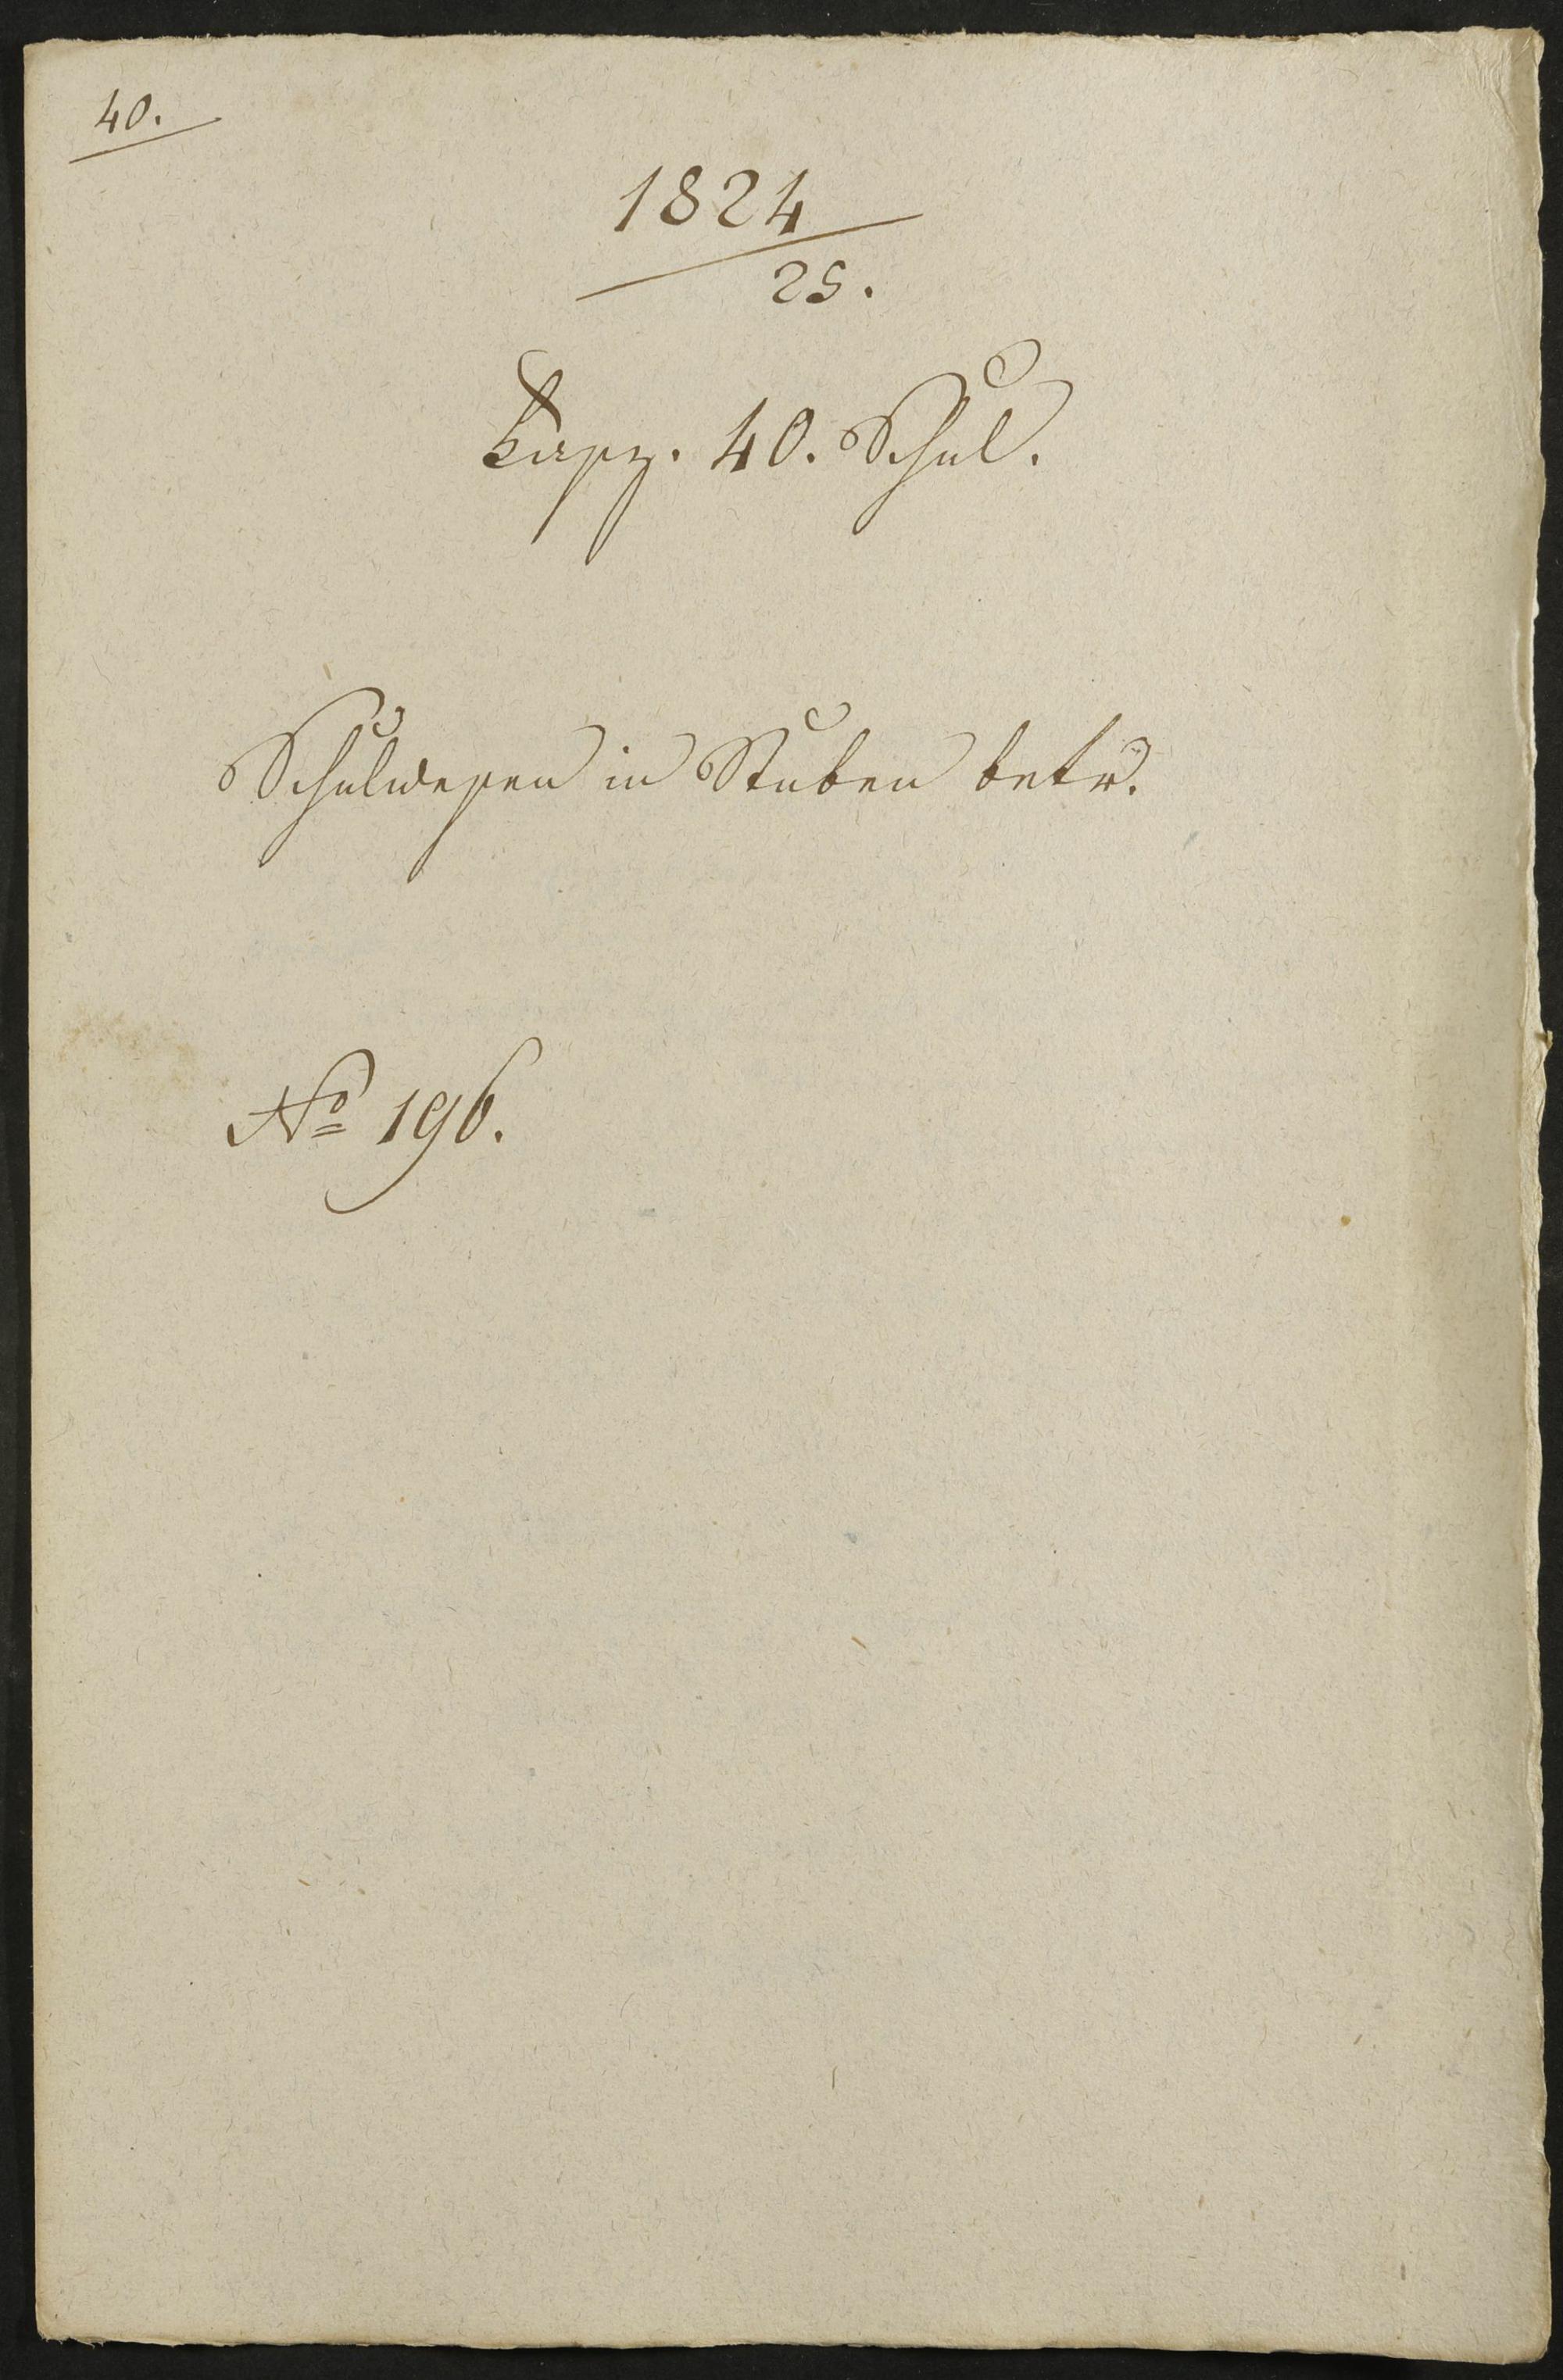 40.
1824
25.
Fasz. 40. Schul.
Schulwesen in Stuben betr.
No 196.